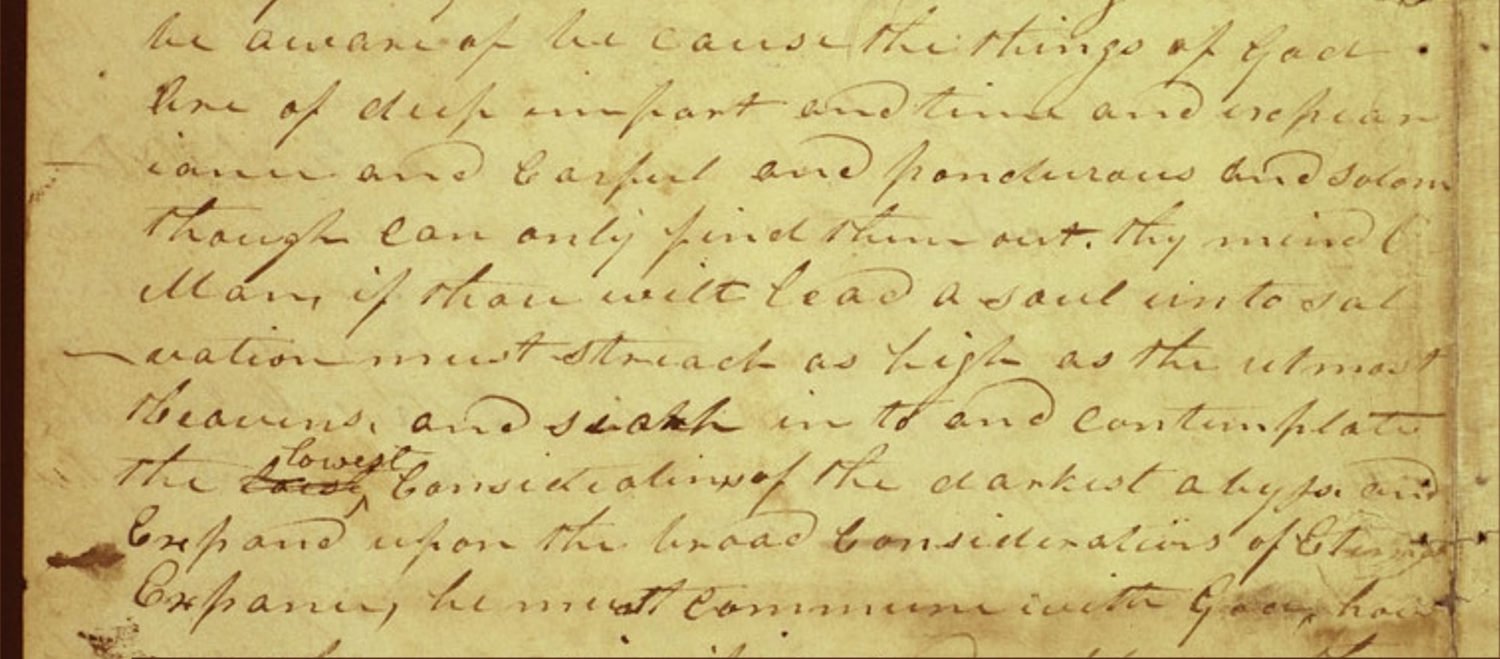 be aware of be cause the things of God
are of deep import and time and expear
iance and carful and pondurous and solom
though can only find them out. thy mind O
Man, if thou wilt lead a soul unto sal
vation must streach as high as the utmost
Heavens, and search in to and contemplate
the lowest Considerations of the darkest abyss, and
Expand upon the broad considerations of Eternal
Expance, he must commune with God, how